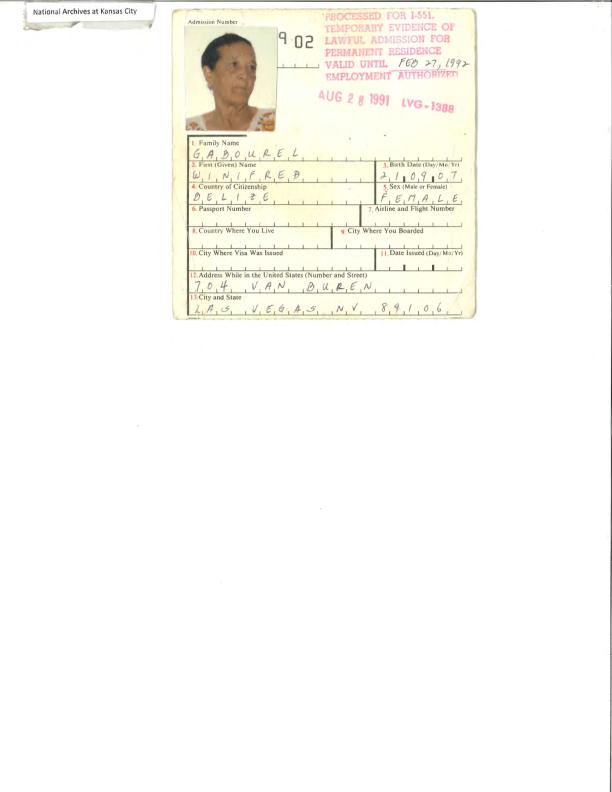 National Archives at Kansas City
Admission Number
9 02
PROCESSED FOR I-551.
TEMPORARY EVIDENCE OF
LAWFUL ADMISSION FOR
PERMANENT RESIDENCE
VALID UNTIL FEB 27, 1992
EMPLOYMENT AUTHORIZED
AUG 28 1991 LVG-1388
1. Family Name
GABOUREL
2. First (Given) Name
3. Birth Date (Day/Mo/Yr)
WINIFRED
210907
4. Country of Citizenship
5. Sex (Male or Female)
BELIZE
FEMALE
6. Passport Number
7. Airline and Flight Number
8. Country Where You Live
9. City Where You Boarded
10. City Where Visa Was Issued
11. Date Issued (Day/Mo/Yr)
12. Address While in the United States (Number and Street)
704 VAN BUREN
13. City and State
LAS VEGAS NV 89106